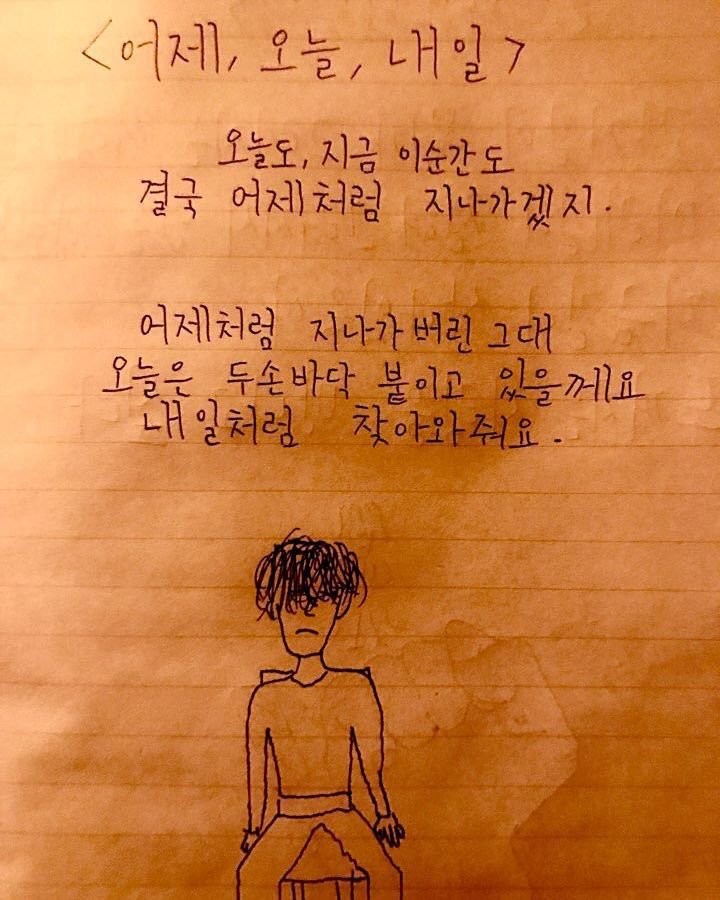 <어제, 오늘, 내일>
오늘도, 지금 이순간도
결국 어제처럼 지나가겠지.
어제처럼 지나가버린 그대
오늘은 두손바닥 붙이고 있을께요
내일처럼 찾아와줘요.